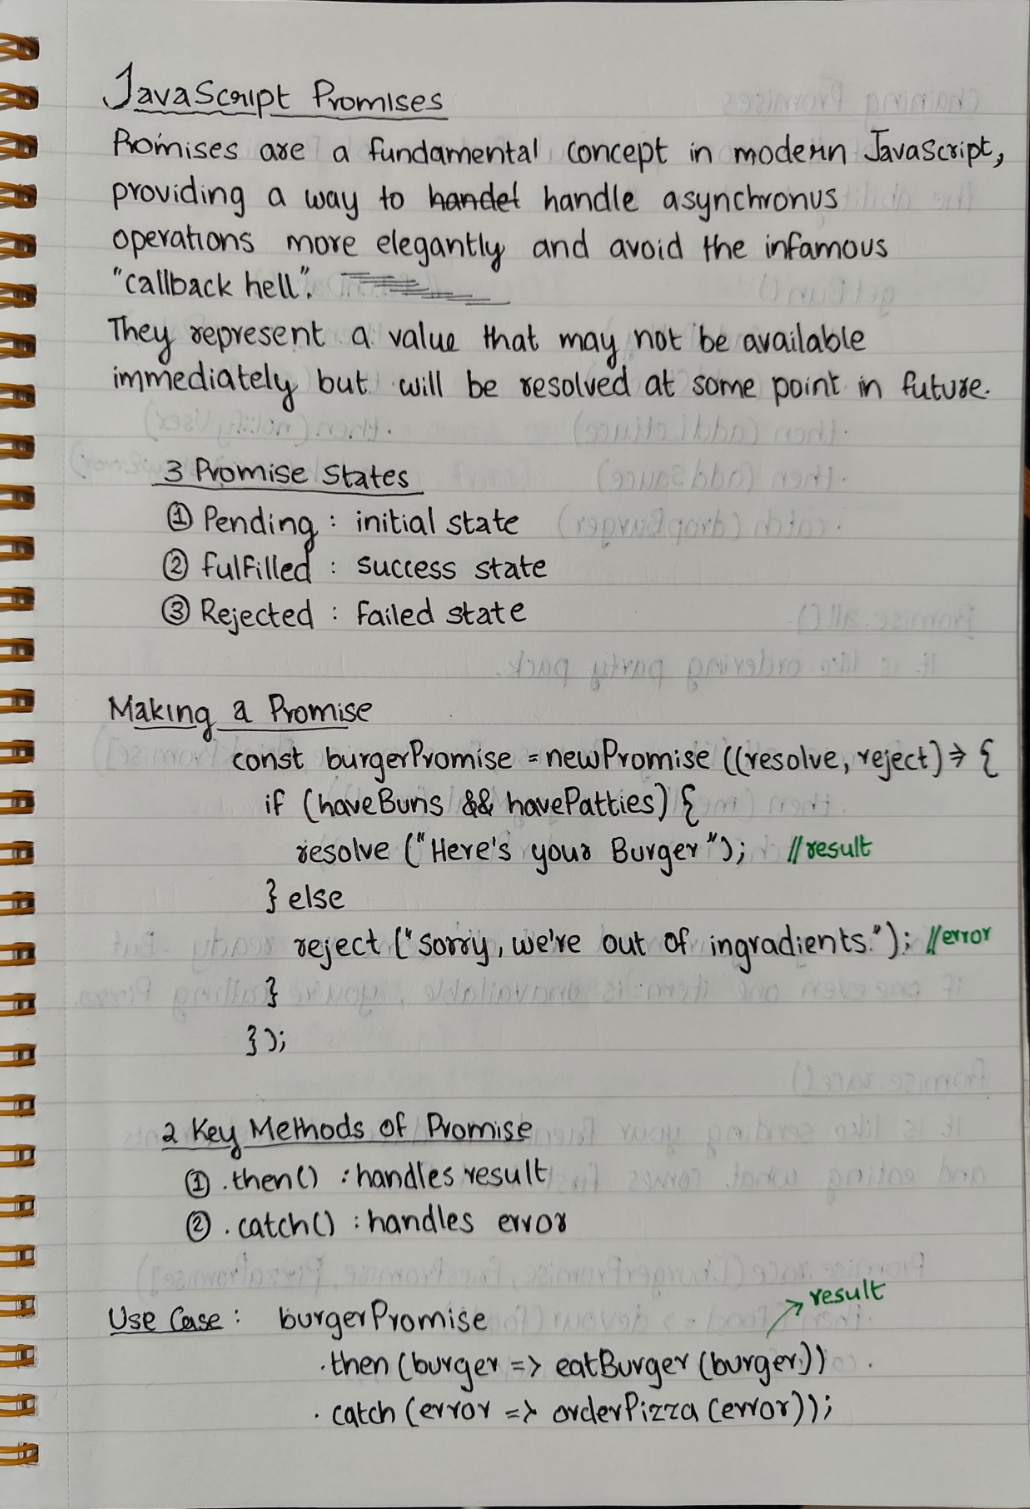 JavaScript Promises
Promises are a fundamental concept in modern JavaScript,
providing a way to handel handle asynchronus
operations more elegantly and avoid the infamous
"callback hell".
They represent a value that may not be available
immediately but will be resolved at some point in future.
3 Promise States
① Pending : initial state
② fulfilled : success state
③ Rejected : failed state
Making a Promise
const burgerPromise = newPromise ((resolve, reject) => {
if (haveBuns && havePatties) {
resolve ("Here's your Burger"); //result
} else
reject ("Sorry, we're out of ingradients."); //error
}
});
2 Key Methods of Promise
① .then() : handles result
② .catch() : handles error
result
Use Case : burgerPromise
.then (burger => eatBurger (burger))
.catch (error => orderPizza (error));